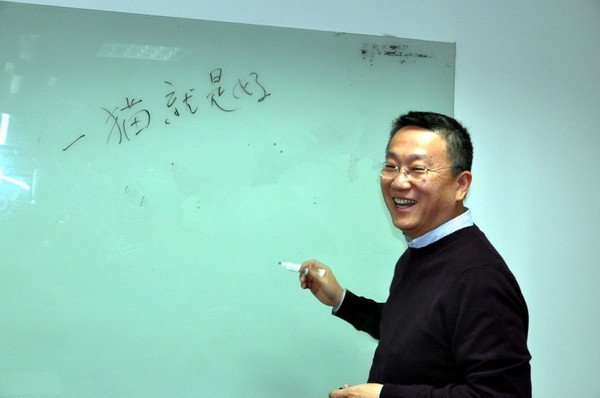 一猫就是好